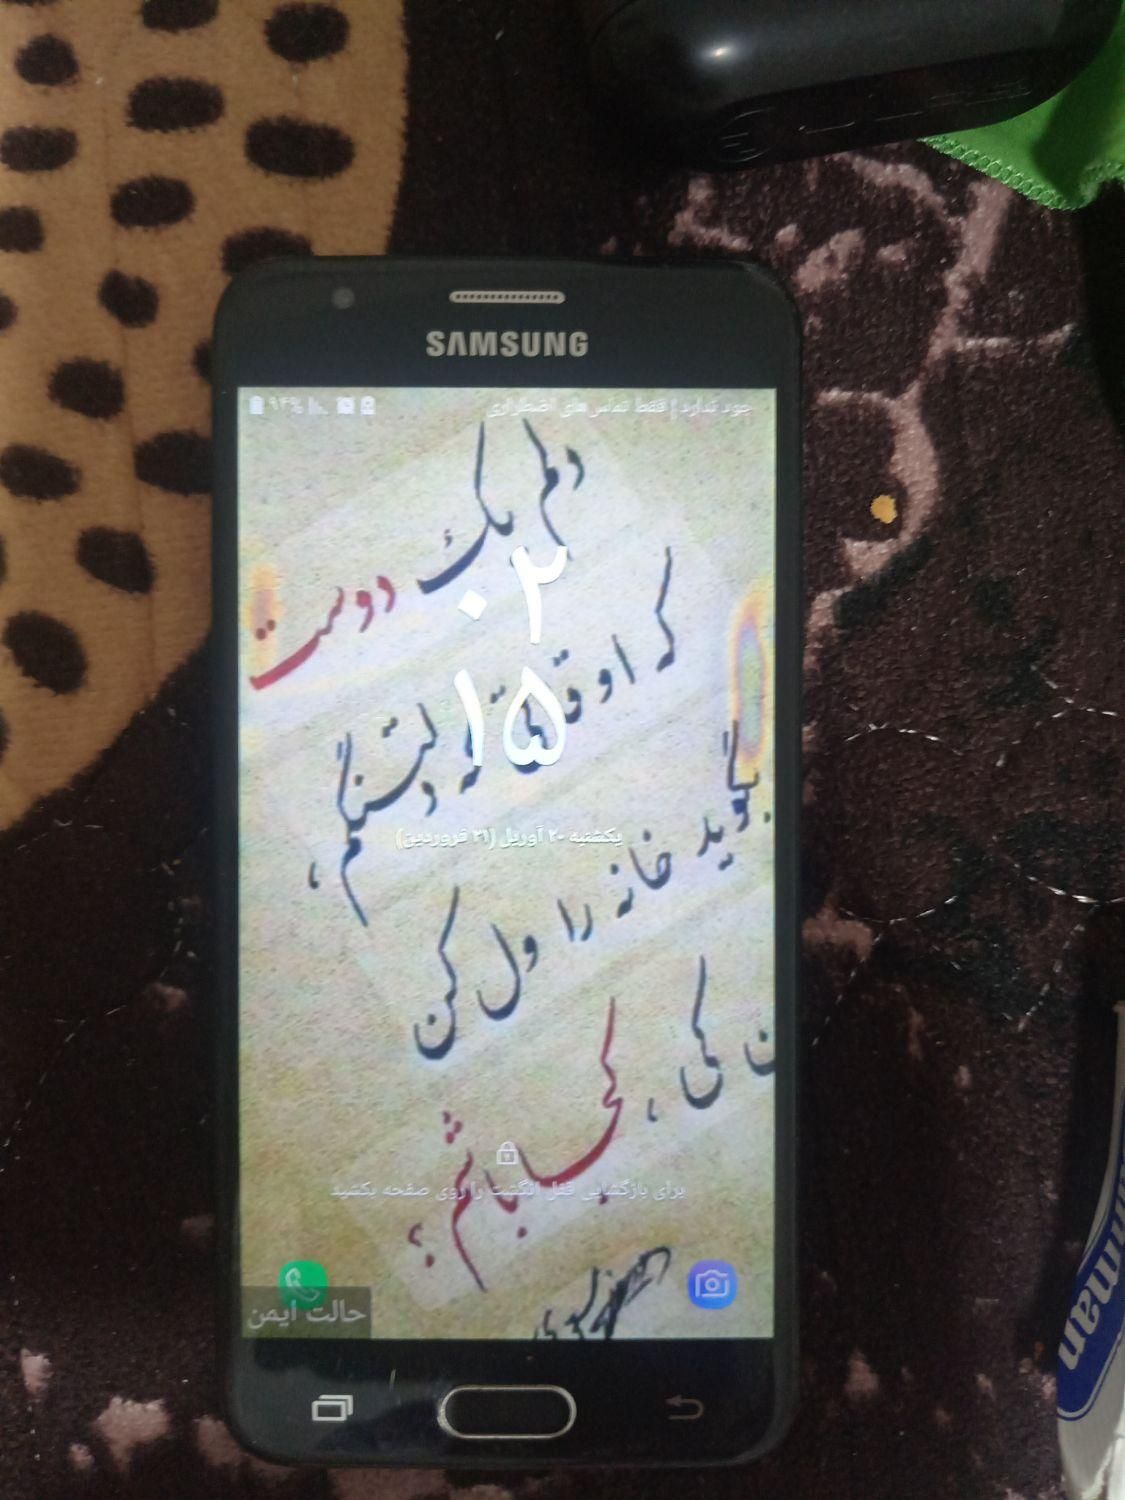 SAMSUNG
۹۴%
جود ندارد | فقط تماس‌های اضطراری
دلم یک دوست
که اوقا که دلتنگم،
۰۲
۱۵
یکشنبه ۲۰ آوریل (۳۱ فروردین)
بگوید خانه را ول کن
کی،
کجا باشم؟
برای بازگشایی قفل انگشت را روی صفحه بکشید
حالت ایمن